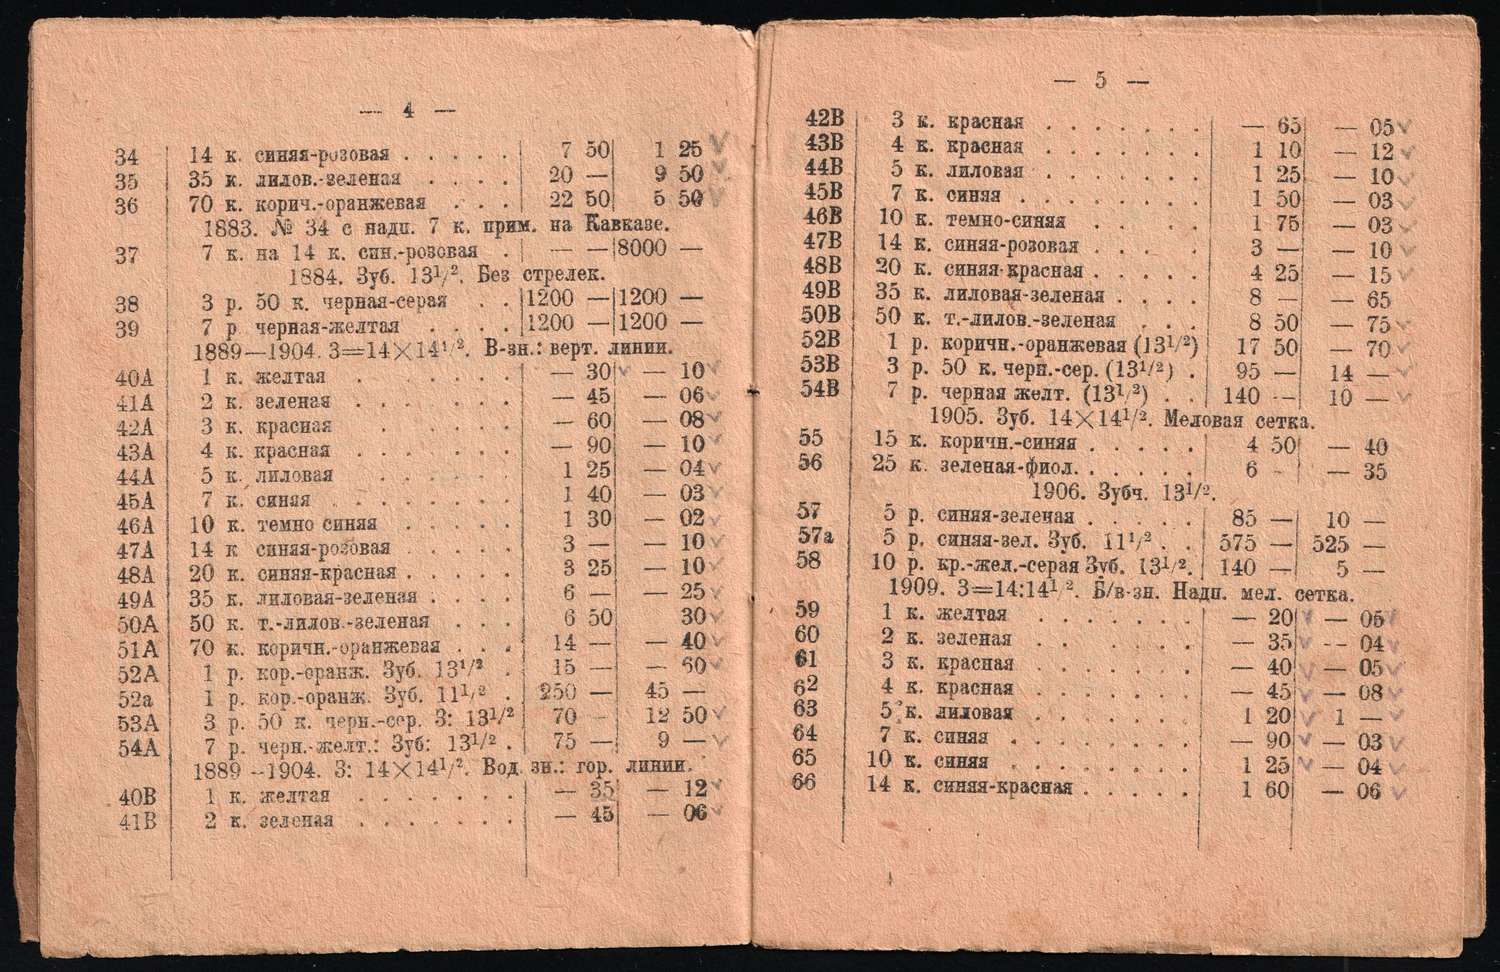 — 4 —
34 14 к. синяя-розовая . . . . . 7 50 1 25
35 35 к. лилов.-зеленая . . . . 20 — 9 50
36 70 к. корич.-оранжевая . . . 22 50 5 50
1883. № 34 с надп. 7 к. прим. на Кавказе.
37 7 к. на 14 к. син.-розовая . — — 8000 —
1884. Зуб. 13¹/². Без стрелек.
38 3 р. 50 к. черная-серая . . 1200 — 1200 —
39 7 р. черная-желтая . . . . 1200 — 1200 —
1889—1904. З=14×14¹/². В-зн.: верт. линии.
40А 1 к. желтая . . . . . . — 30 — 10
41А 2 к. зеленая . . . . . . — 45 — 06
42А 3 к. красная . . . . . — 60 — 08
43А 4 к. красная . . . . . . — 90 — 10
44А 5 к. лиловая . . . . . 1 25 — 04
45А 7 к. синяя . . . . . . . 1 40 — 03
46А 10 к. темно синяя . . . . . 1 30 — 02
47А 14 к синяя-розовая . . . . . 3 — — 10
48А 20 к. синяя-красная . . . . . 3 25 — 10
49А 35 к. лиловая-зеленая . . . . 6 — — 25
50А 50 к. т.-лилов.-зеленая . . . 6 50 30
51А 70 к. коричн.-оранжевая . . . 14 — — 40
52А 1 р. кор.-оранж. Зуб. 13¹/² . 15 — — 60
52а 1 р. кор.-оранж. Зуб. 11¹/² . 250 — 45 —
53А 3 р. 50 к. черн.-сер. З: 13¹/² 70 - 12 50
54А 7 р. черн.-желт.: Зуб: 13¹/² . 75 — 9 —
1889 —1904. З: 14×14¹/². Вод. зн.: гор. линии.
40В 1 к. желтая . . . . . . . — 35 — 12
41В 2 к. зеленая . . . . . . . — 45 — 06
— 5 —
42В 3 к. красная . . . . . . . — 65 — 05
43В 4 к. красная . . . . . . . 1 10 — 12
44В 5 к. лиловая . . . . . . 1 25 — 10
45В 7 к. синяя . . . . . . . 1 50 — 03
46В 10 к. темно-синяя . . . . . 1 75 — 03
47В 14 к. синяя-розовая . . . . . 3 — — 10
48В 20 к. синяя-красная . . . . . 4 25 — 15
49В 35 к. лиловая-зеленая . . . . 8 — — 65
50В 50 к. т.-лилов.-зеленая . . . 8 50 — 75
52В 1 р. коричн.-оранжевая (13¹/²) 17 50 — 70
53В 3 р. 50 к. черн.-сер. (13¹/²) . 95 — 14 —
54В 7 р. черная желт. (13¹/²) . . 140 — 10 —
1905. Зуб. 14×14¹/². Меловая сетка.
55 15 к. коричн.-синяя . . . . . 4 50 — 40
56 25 к. зеленая-фиол. . . . . . 6 - — 35
1906. Зубч. 13¹/².
57 5 р. синяя-зеленая . . . . . 85 — 10 —
57а 5 р. синяя-зел. Зуб. 11¹/² . . 575 — 525 —
58 10 р. кр.-жел.-серая Зуб. 13¹/². 140 — 5 —
1909. З=14:14¹/². Б/в-зн. Надп. мел. сетка.
59 1 к. желтая . . . . . . . — 20 — 05
60 2 к. зеленая . . . . . . . — 35 — 04
61 3 к. красная . . . . . . . — 40 — 05
62 4 к. красная . . . . . . . — 45 — 08
63 5 к. лиловая . . . . . . . 1 20 1 —
64 7 к. синяя . . . . . . . . — 90 — 03
65 10 к. синяя . . . . . . . . 1 25 — 04
66 14 к. синяя-красная . . . . . 1 60 — 06